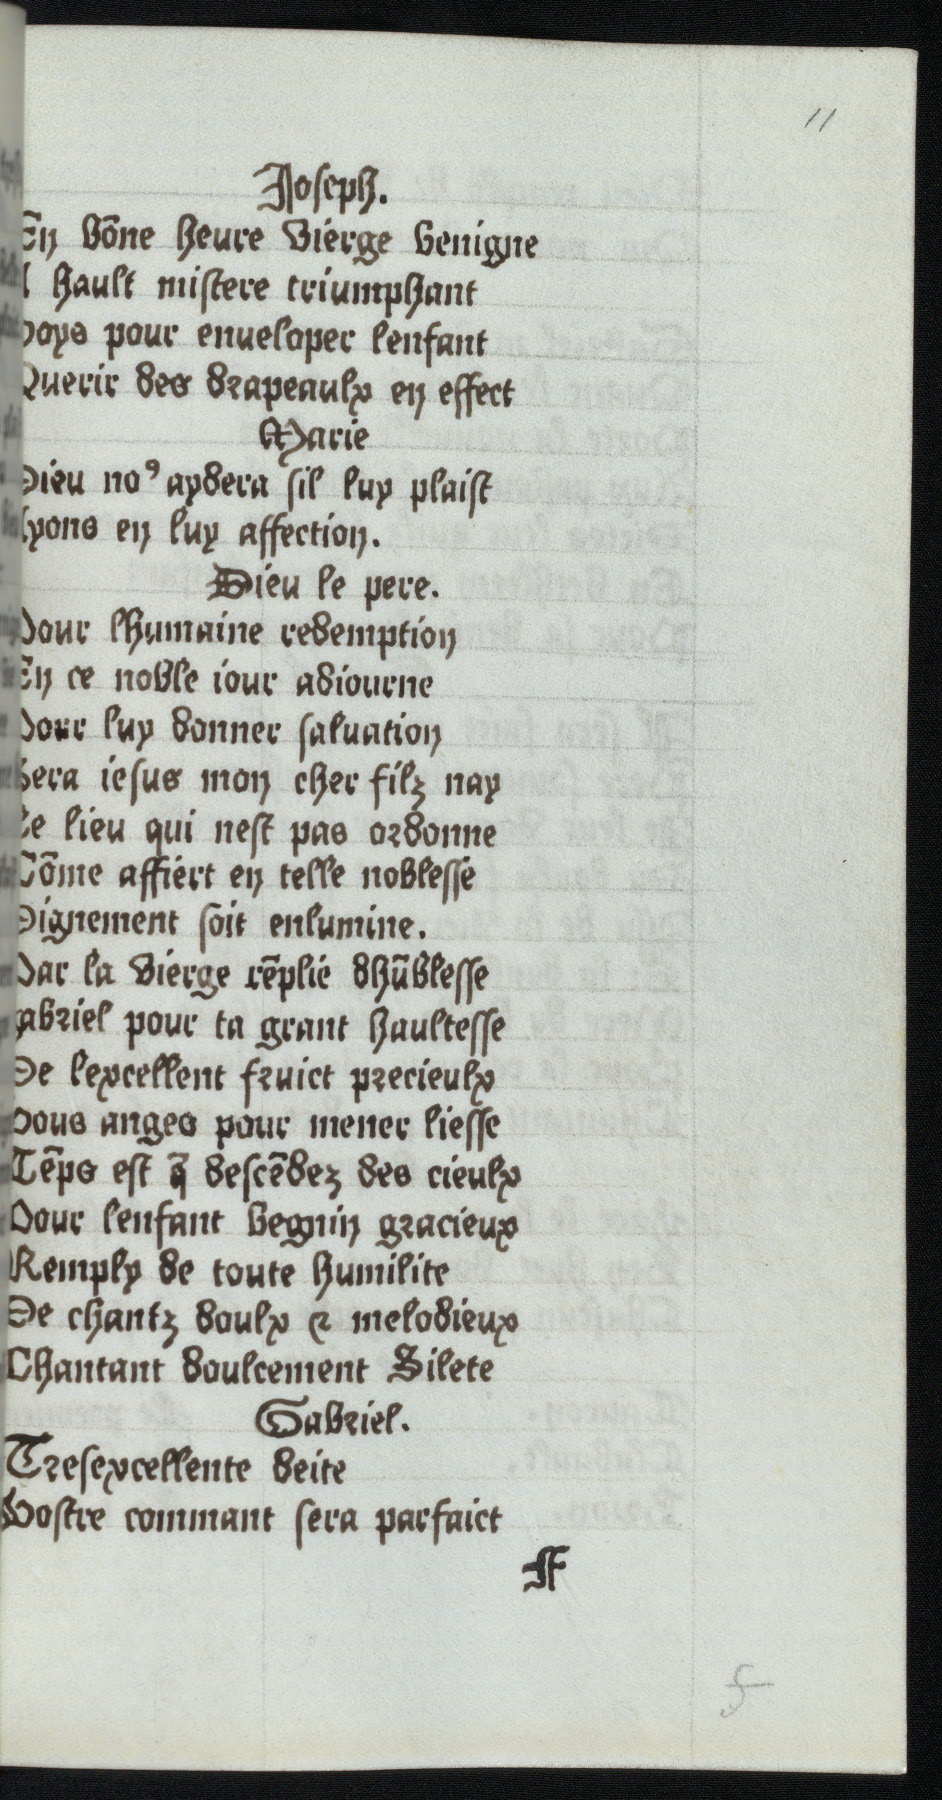 11
Joseph.
En bõne heure vierge benigne
hault mistere triumphant
voys pour enueloper lenfant
Querir des drapeaulx en effect
Marie
Dieu noꝰ aydera sil luy plaist
ayons en luy affection.
Dieu le pere.
Pour lhumaine redemption
En ce noble iour adiourne
Pour luy donner saluation
Sera iesus mon cher filz nay
Le lieu qui nest pas ordonne
Cõme affiert en telle noblesse
Dignement soit enlumine.
Par la vierge rẽplie dhũblesse
gabriel pour ta grant haultesse
De lexcellent fruict precieulx
vous anges pour mener liesse
Tẽps est q̃ descẽdez des cieulx
Pour lenfant begnin gracieux
Remply de toute humilite
De chantz doulx ⁊ melodieux
Chantant doulcement Silete
Gabriel.
Tresexcellente deite
Vostre commant sera parfaict